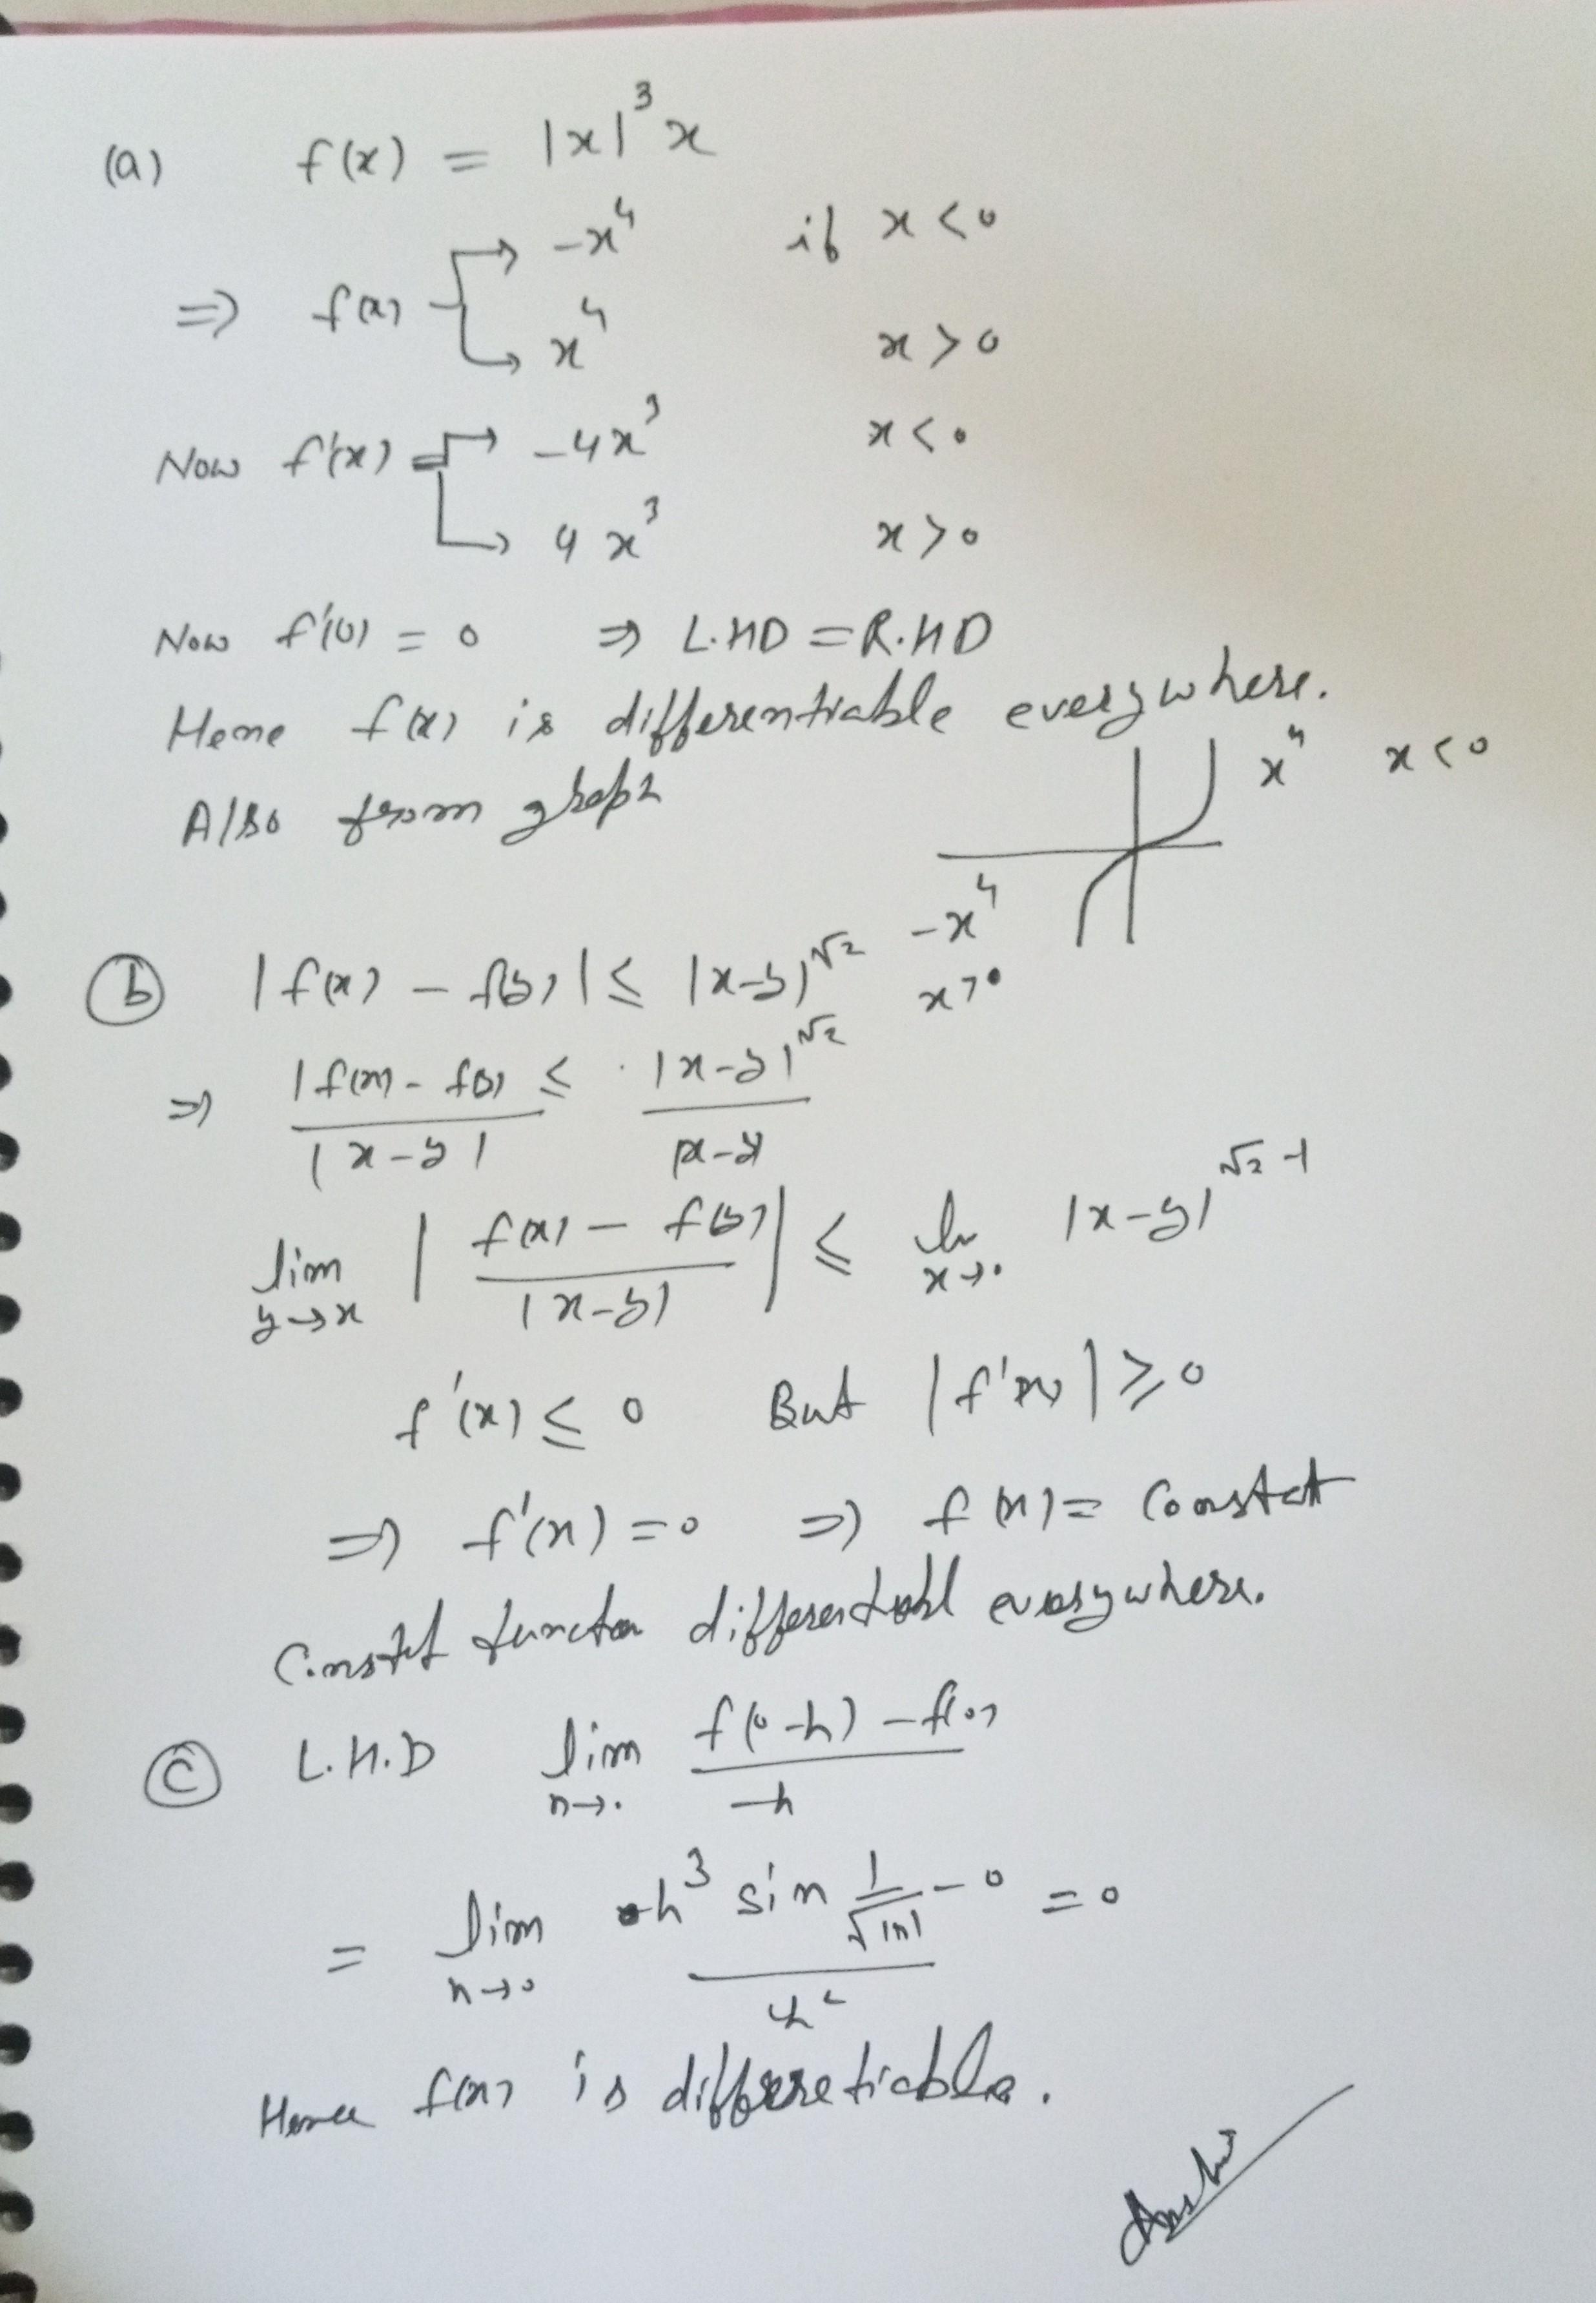 (a) f(x) = |x|³ x
⇒ f(x) → -x⁴ if x < 0
→ x⁴ x > 0
Now f'(x) = → -4x³ x < 0
→ 4x³ x > 0
Now f'(0) = 0 ⇒ L.HD = R.HD
Hene f(x) is differentiable everywhere.
Also from graph
x⁴ x < 0
-x⁴
x > 0
(b) |f(x) - f(y)| ≤ |x-y|^√2
⇒ |f(x) - f(y) / |x-y| ≤ |x-y|^√2 / |x-y|
lim y→x | f(x) - f(y) / |x-y| | ≤ lim x→0 |x-y|^√2-1
f'(x) ≤ 0 But |f'(x)| ≥ 0
⇒ f'(x) = 0 ⇒ f(x) = Constat
differentiabl everywhere.
(c) L.H.D lim h→0 f(0-h) - f(0) / -h
= lim h→0 h³ sin 1/√|h| - 0 / h² = 0
Hence f(x) is differetiable.